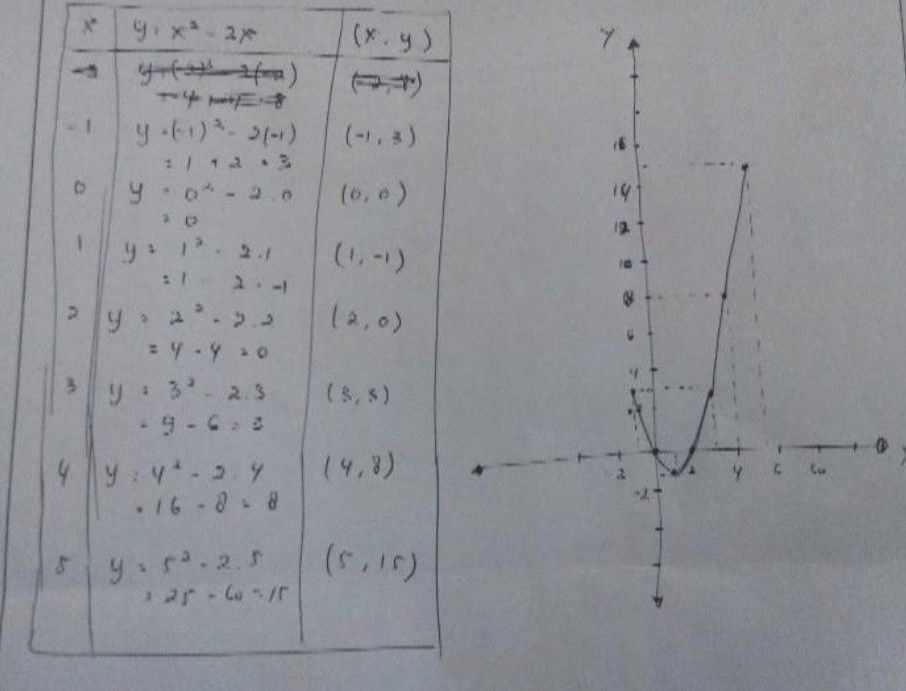 x y = x² - 2x (x, y)
-1 y = (-1)² - 2(-1) (-1, 3)
= 1 + 2 = 3
0 y = 0² - 2.0 (0, 0)
= 0
1 y = 1² - 2.1 (1, -1)
= 1 - 2 = -1
2 y = 2² - 2.2 (2, 0)
= 4 - 4 = 0
3 y = 3² - 2.3 (3, 3)
= 9 - 6 = 3
4 y = 4² - 2.4 (4, 8)
= 16 - 8 = 8
5 y = 5² - 2.5 (5, 15)
= 25 - 10 = 15
Y
16
14
12
10
8
6
4
2 2 4 6 X
-2